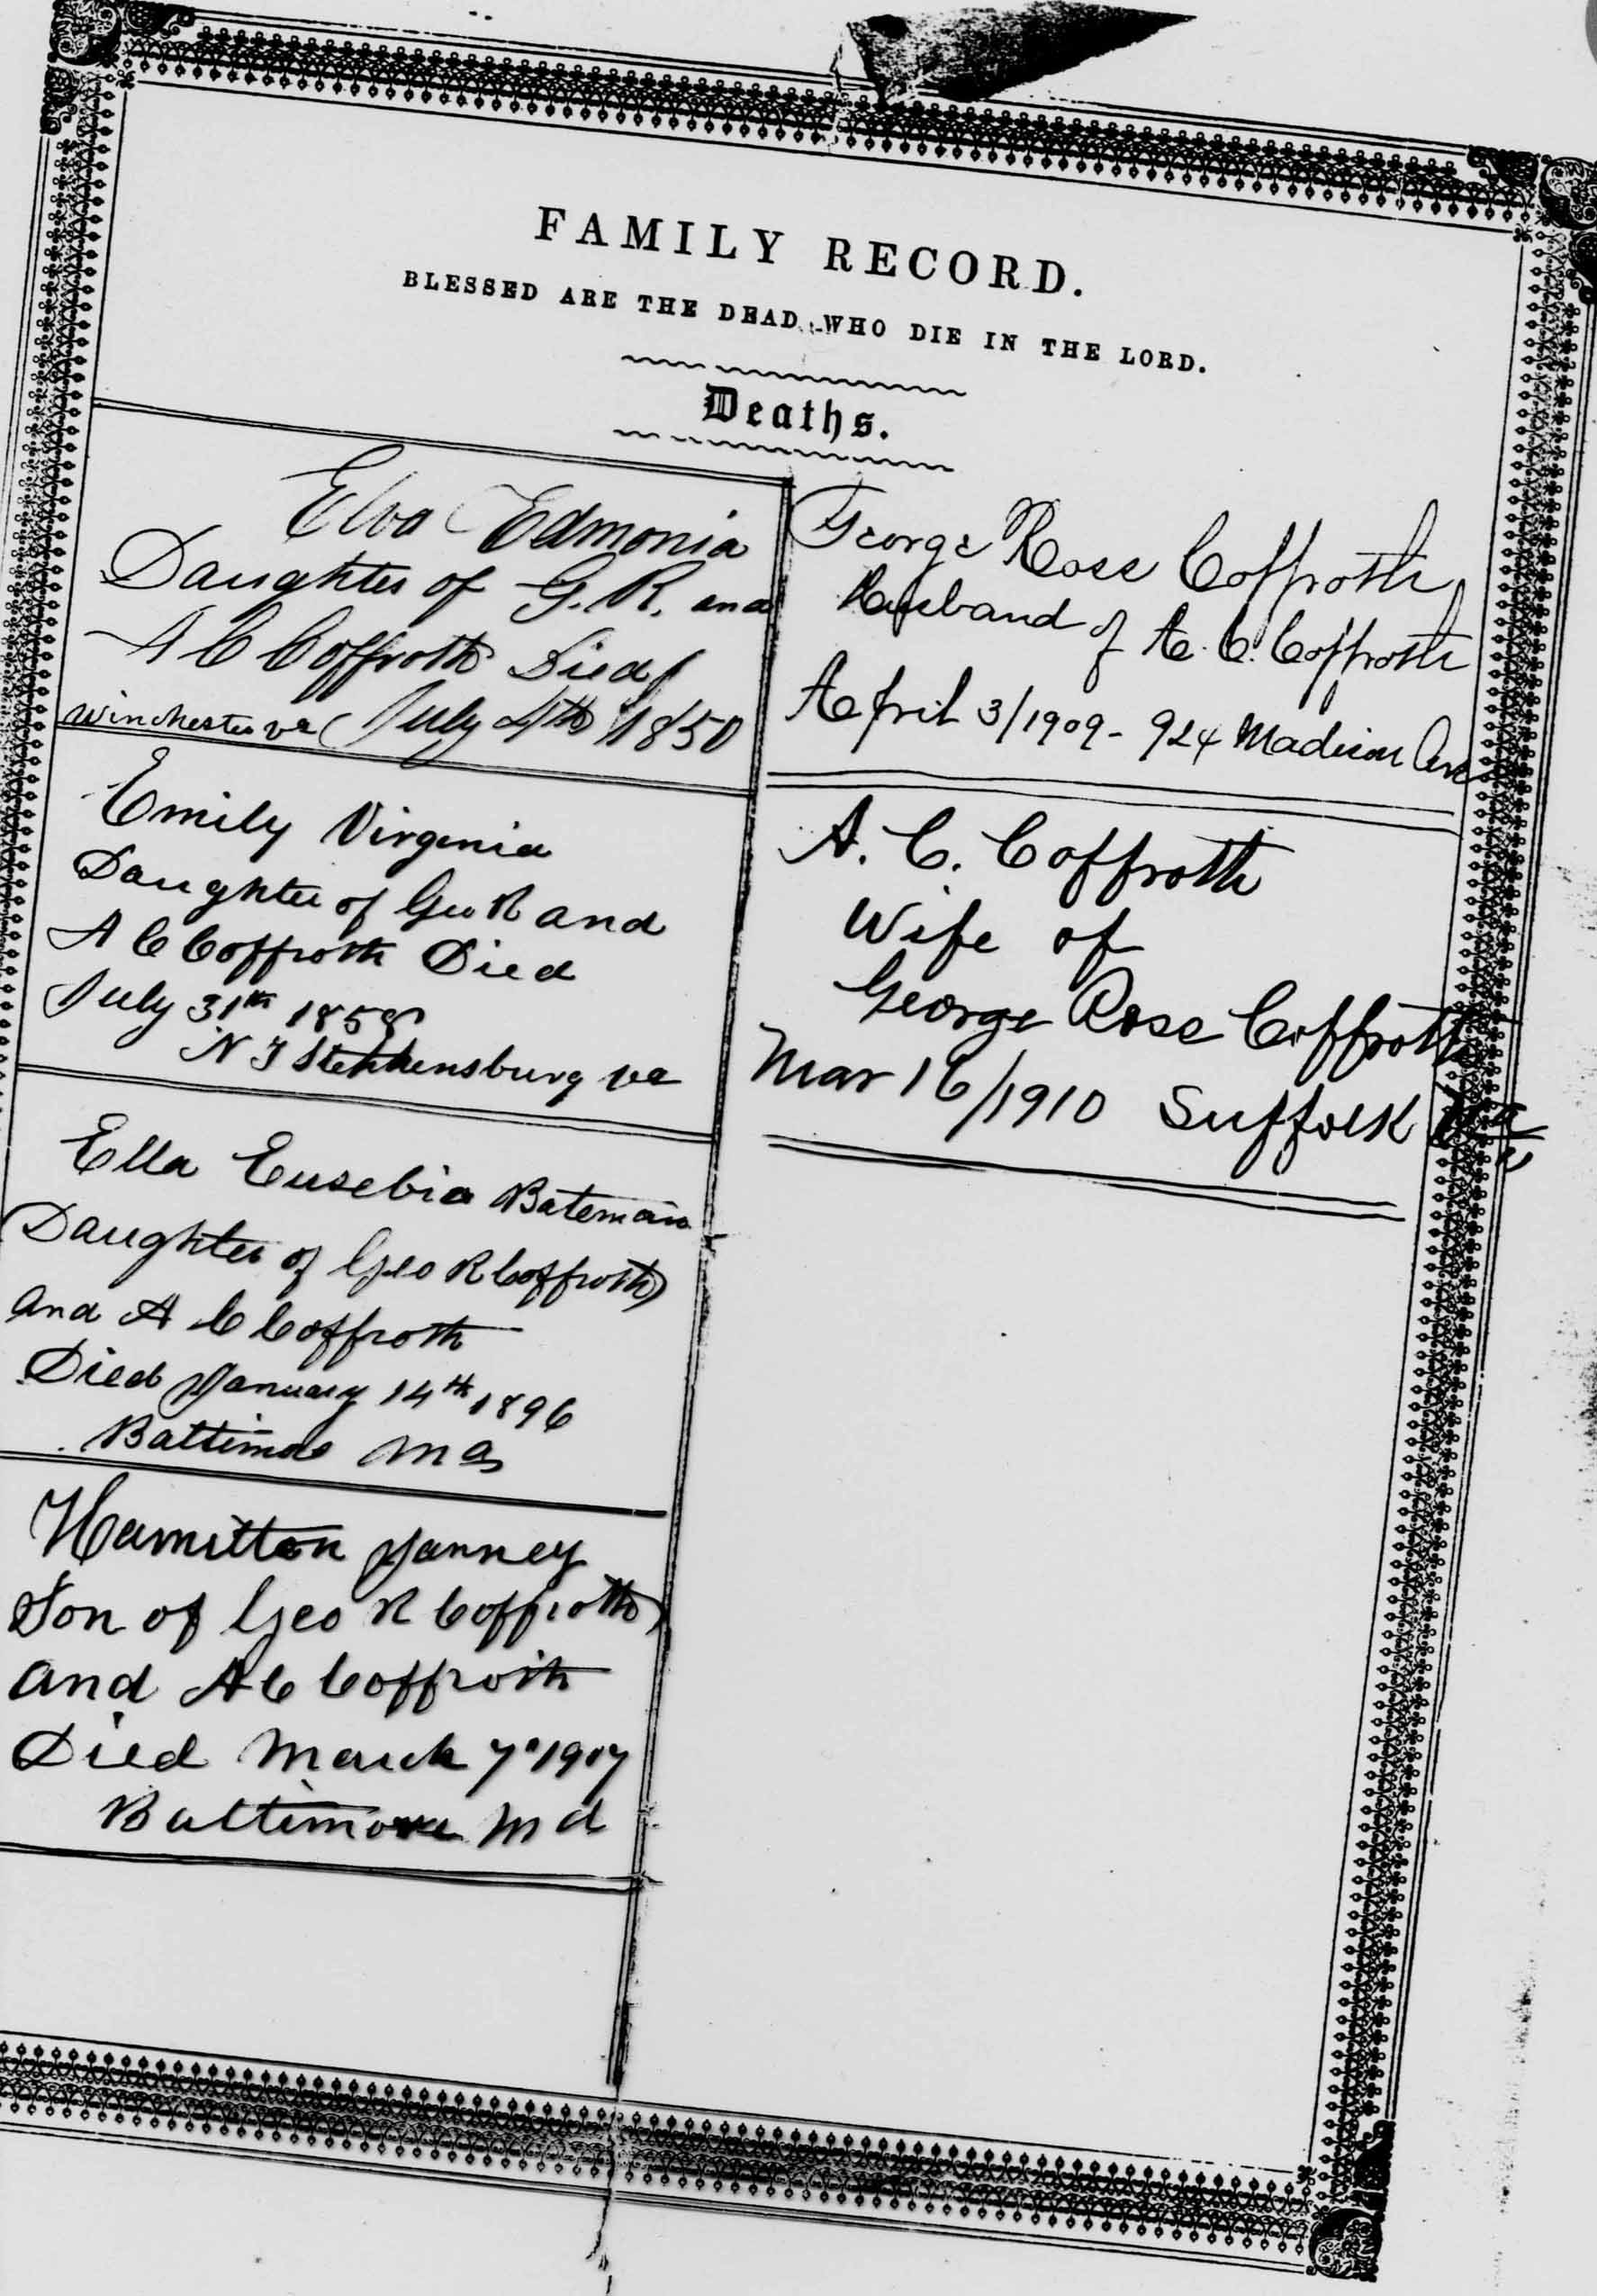 FAMILY RECORD.
BLESSED ARE THE DEAD WHO DIE IN THE LORD.
Deaths.
Elva Edmonia
Daughter of G. R. and
A C Coffroth Died
Winchester va July 4th 1850
Emily Virginia
Daughter of Geo R and
A C Coffroth Died
July 31th 1858
N T Stephensburg va
Ella Eusebia Bateman
Daughter of Geo R Coffroth
and A C Coffroth
Died January 14th 1896
Baltimore Md
Hamilton Janney
Son of Geo R Coffroth
and A C Coffroth
Died March 7" 1907
Baltimore Md
George Rose Coffroth
Husband of A. C. Coffroth
April 3/1909 - 924 Madison Ave
A. C. Coffroth
Wife of
George Rose Coffroth
Mar 16/1910 Suffolk Va